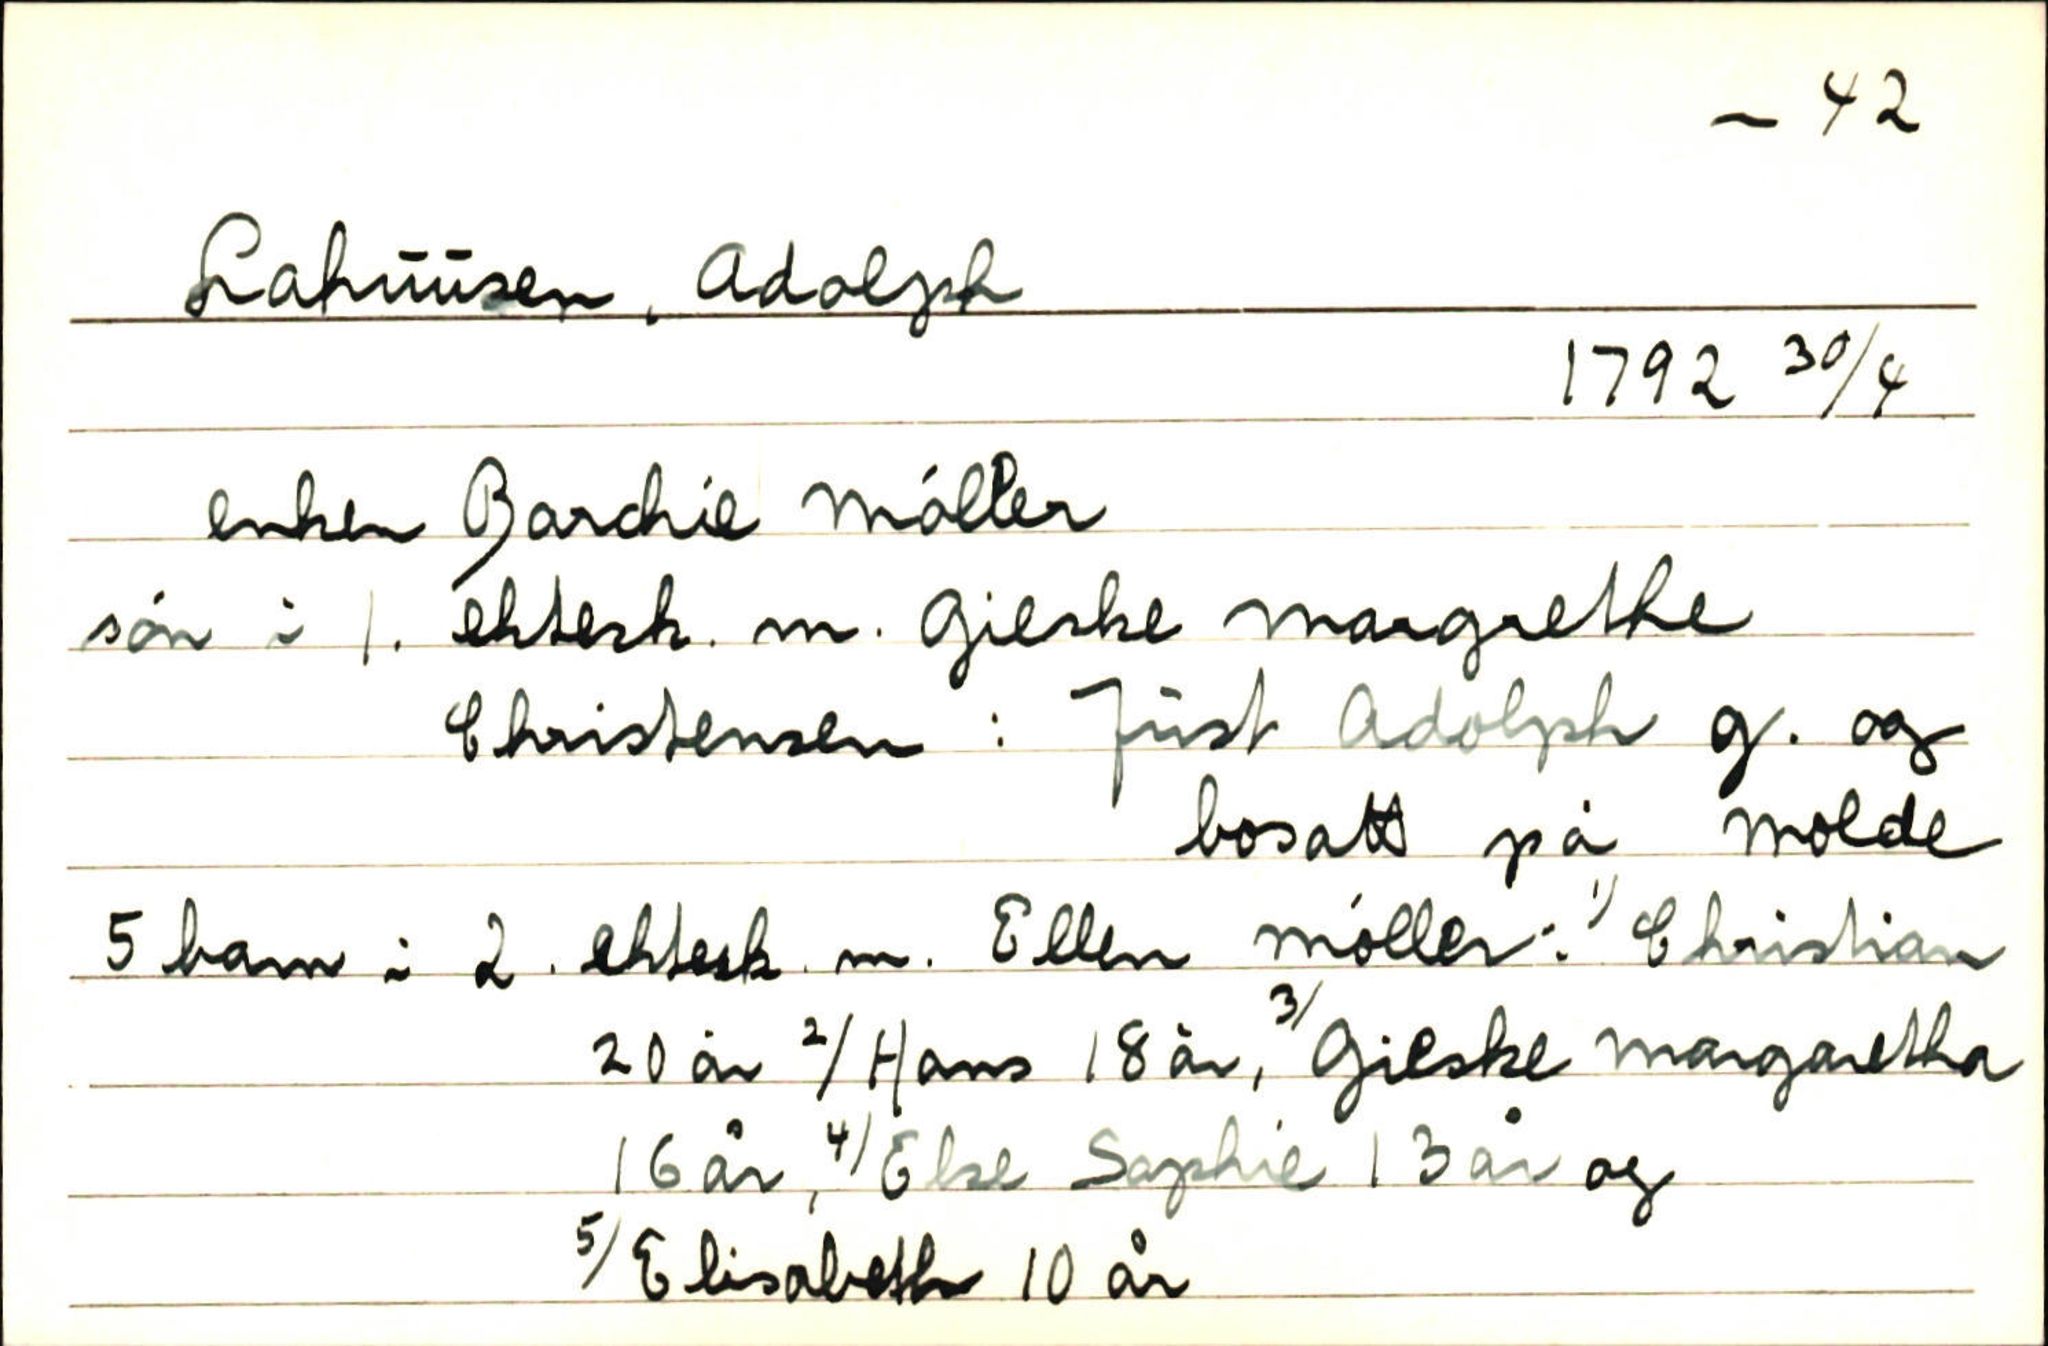 ~ 42
Lahuusen, Adolph
1792 30/4
enken Barchie Möller
sön i 1. ektesk. m. Gieske Margrethe
Christensen : Just Adolph g. og
bosatt på Molde
5 barn i 2. ektesk. m. Ellen Möller: 1/ Christian
20 år 2/ Hans 18 år, 3/ Gieske Margaretha
16 år, 4/ Else Sophie 13 år og
5/ Elisabeth 10 år